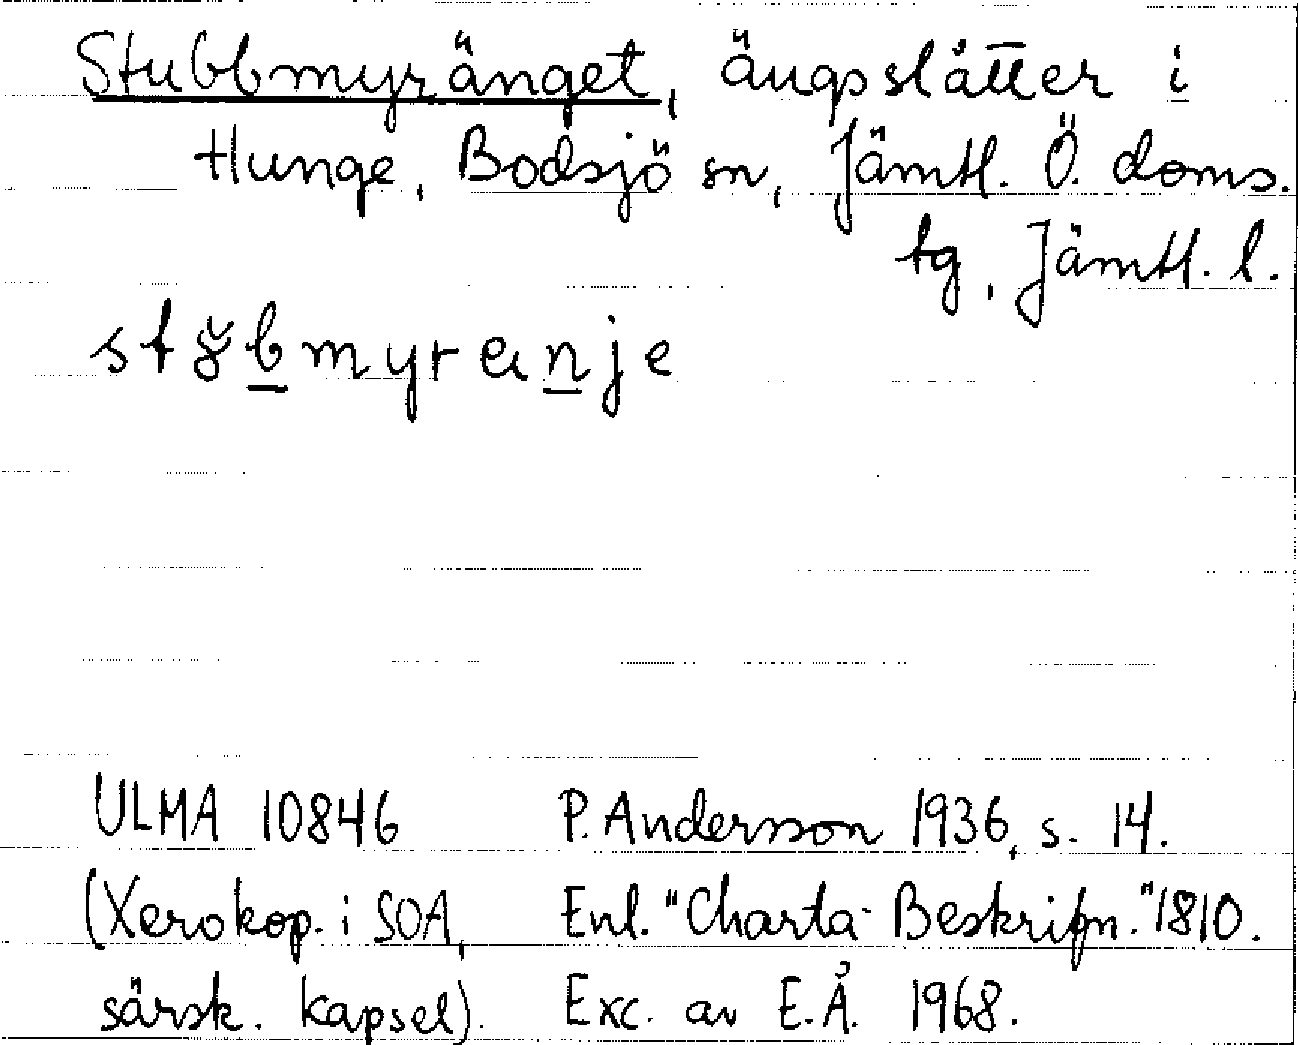 Stubbmyränget, ängsslåtter i
Hunge, Bodsjö sn, Jämtl. Ö. doms.
tg, Jämtl. l.
ULMA 10846 P. Andersson 1936, s. 14.
(Xerokop. i SOA, Enl. "Charta-Beskrifn." 1810.
särsk. kapsel). Exc. av E.Å. 1968.